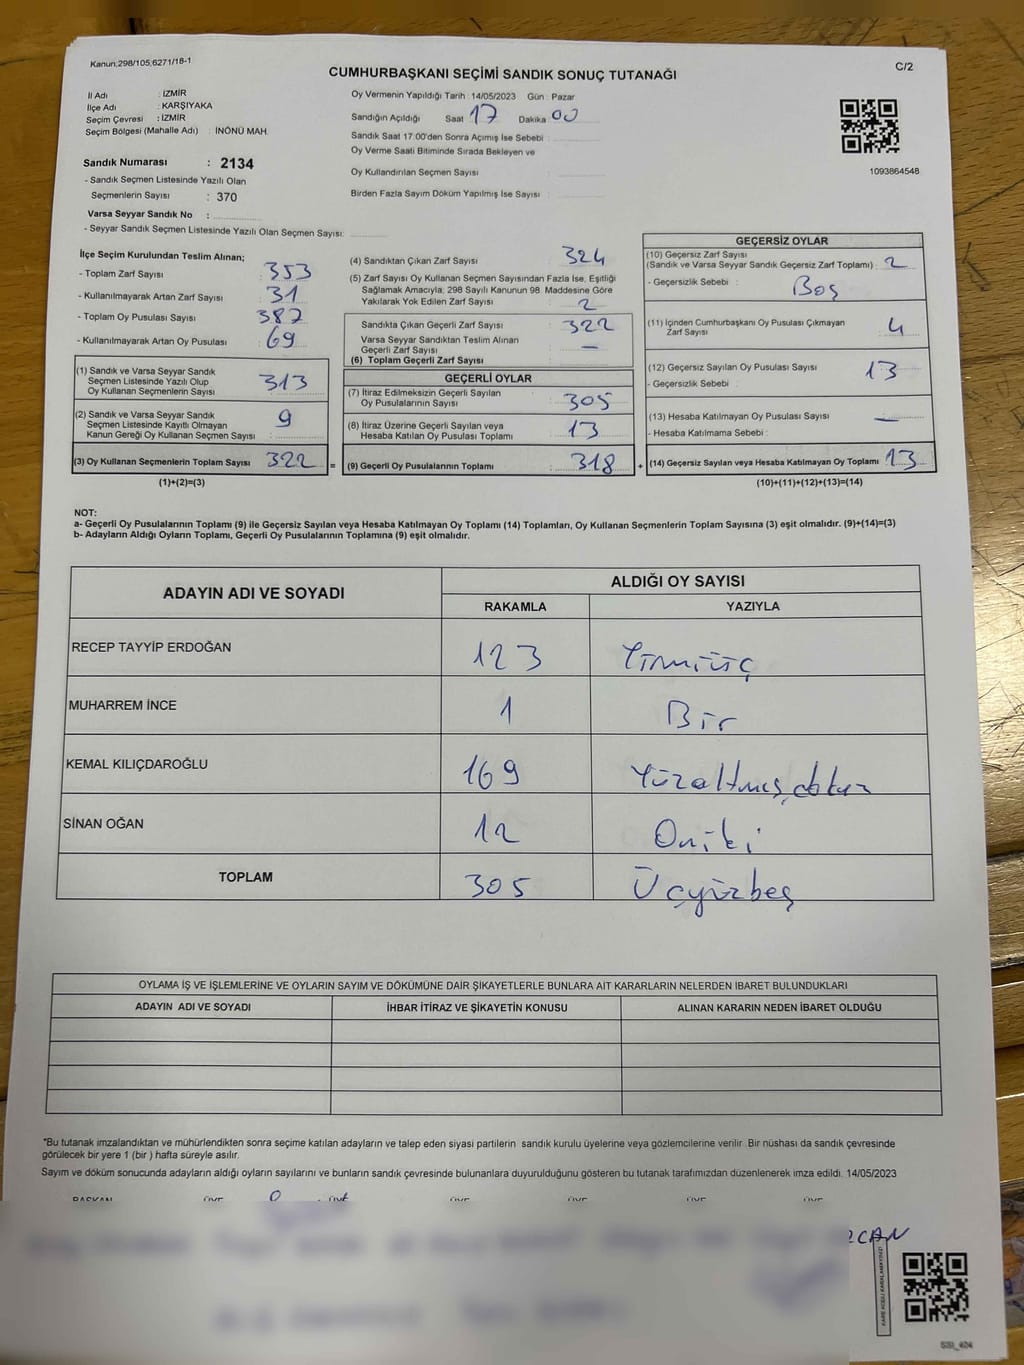 Kanun,298/105,6271/18-1
C/2
CUMHURBAŞKANI SEÇİMİ SANDIK SONUÇ TUTANAĞI
İl Adı : İZMİR
İlçe Adı : KARŞIYAKA
Seçim Çevresi : İZMİR
Seçim Bölgesi (Mahalle Adı) : İNÖNÜ MAH.
Sandık Numarası : 2134
- Sandık Seçmen Listesinde Yazılı Olan
Seçmenlerin Sayısı : 370
Varsa Seyyar Sandık No :
- Seyyar Sandık Seçmen Listesinde Yazılı Olan Seçmen Sayısı:
Oy Vermenin Yapıldığı Tarih : 14/05/2023 Gün : Pazar
Sandığın Açıldığı Saat 17 Dakika 00
Sandık Saat 17:00'den Sonra Açımış İse Sebebi :
Oy Verme Saati Bitiminde Sırada Bekleyen ve
Oy Kullandırılan Seçmen Sayısı :
Birden Fazla Sayım Döküm Yapılmış İse Sayısı :
1093864548
İlçe Seçim Kurulundan Teslim Alınan;
- Toplam Zarf Sayısı : 353
- Kullanılmayarak Artan Zarf Sayısı : 31
- Toplam Oy Pusulası Sayısı : 387
- Kullanılmayarak Artan Oy Pusulası : 69
(1) Sandık ve Varsa Seyyar Sandık
Seçmen Listesinde Yazılı Olup
Oy Kullanan Seçmenlerin Sayısı : 313
(2) Sandık ve Varsa Seyyar Sandık
Seçmen Listesinde Kayıtlı Olmayan
Kanun Gereği Oy Kullanan Seçmen Sayısı : 9
(3) Oy Kullanan Seçmenlerin Toplam Sayısı : 322
(1)+(2)=(3)
(4) Sandıktan Çıkan Zarf Sayısı : 324
(5) Zarf Sayısı Oy Kullanan Seçmen Sayısından Fazla İse, Eşitliği
Sağlamak Amacıyla; 298 Sayılı Kanunun 98. Maddesine Göre
Yakılarak Yok Edilen Zarf Sayısı : 2
Sandıkta Çıkan Geçerli Zarf Sayısı : 322
Varsa Seyyar Sandıktan Teslim Alınan
Geçerli Zarf Sayısı : —
(6) Toplam Geçerli Zarf Sayısı :
GEÇERLİ OYLAR
(7) İtiraz Edilmeksizin Geçerli Sayılan
Oy Pusulalarının Sayısı : 305
(8) İtiraz Üzerine Geçerli Sayılan veya
Hesaba Katılan Oy Pusulası Toplamı : 13
= (9) Geçerli Oy Pusulalarının Toplamı : 318
GEÇERSİZ OYLAR
(10) Geçersiz Zarf Sayısı
(Sandık ve Varsa Seyyar Sandık Geçersiz Zarf Toplamı) : 2
- Geçersizlik Sebebi : Boş
(11) İçinden Cumhurbaşkanı Oy Pusulası Çıkmayan
Zarf Sayısı : 4
(12) Geçersiz Sayılan Oy Pusulası Sayısı : 13
- Geçersizlik Sebebi :
(13) Hesaba Katılmayan Oy Pusulası Sayısı : —
- Hesaba Katılmama Sebebi :
+ (14) Geçersiz Sayılan veya Hesaba Katılmayan Oy Toplamı : 13
(10)+(11)+(12)+(13)=(14)
NOT:
a- Geçerli Oy Pusulalarının Toplamı (9) ile Geçersiz Sayılan veya Hesaba Katılmayan Oy Toplamı (14) Toplamları, Oy Kullanan Seçmenlerin Toplam Sayısına (3) eşit olmalıdır. (9)+(14)=(3)
b- Adayların Aldığı Oyların Toplamı, Geçerli Oy Pusulalarının Toplamına (9) eşit olmalıdır.
ADAYIN ADI VE SOYADI
ALDIĞI OY SAYISI
RAKAMLA YAZIYLA
RECEP TAYYİP ERDOĞAN 123 Yirmiüç
MUHARREM İNCE 1 Bir
KEMAL KILIÇDAROĞLU 169 Yüzaltmışdokuz
SİNAN OĞAN 12 Oniki
TOPLAM 305 Üçyüzbeş
OYLAMA İŞ VE İŞLEMLERİNE VE OYLARIN SAYIM VE DÖKÜMÜNE DAİR ŞİKAYETLERLE BUNLARA AİT KARARLARIN NELERDEN İBARET BULUNDUKLARI
ADAYIN ADI VE SOYADI İHBAR İTİRAZ VE ŞİKAYETİN KONUSU ALINAN KARARIN NEDEN İBARET OLDUĞU
*Bu tutanak imzalandıktan ve mühürlendikten sonra seçime katılan adayların ve talep eden siyasi partilerin sandık kurulu üyelerine veya gözlemcilerine verilir. Bir nüshası da sandık çevresinde
görülecek bir yere 1 (bir ) hafta süreyle asılır.
Sayım ve döküm sonucunda adayların aldığı oyların sayılarını ve bunların sandık çevresinde bulunanlara duyurulduğunu gösteren bu tutanak tarafımızdan düzenlenerek imza edildi. 14/05/2023
BAŞKAN ÜYE ÜYE ÜYE ÜYE ÜYE ÜYE